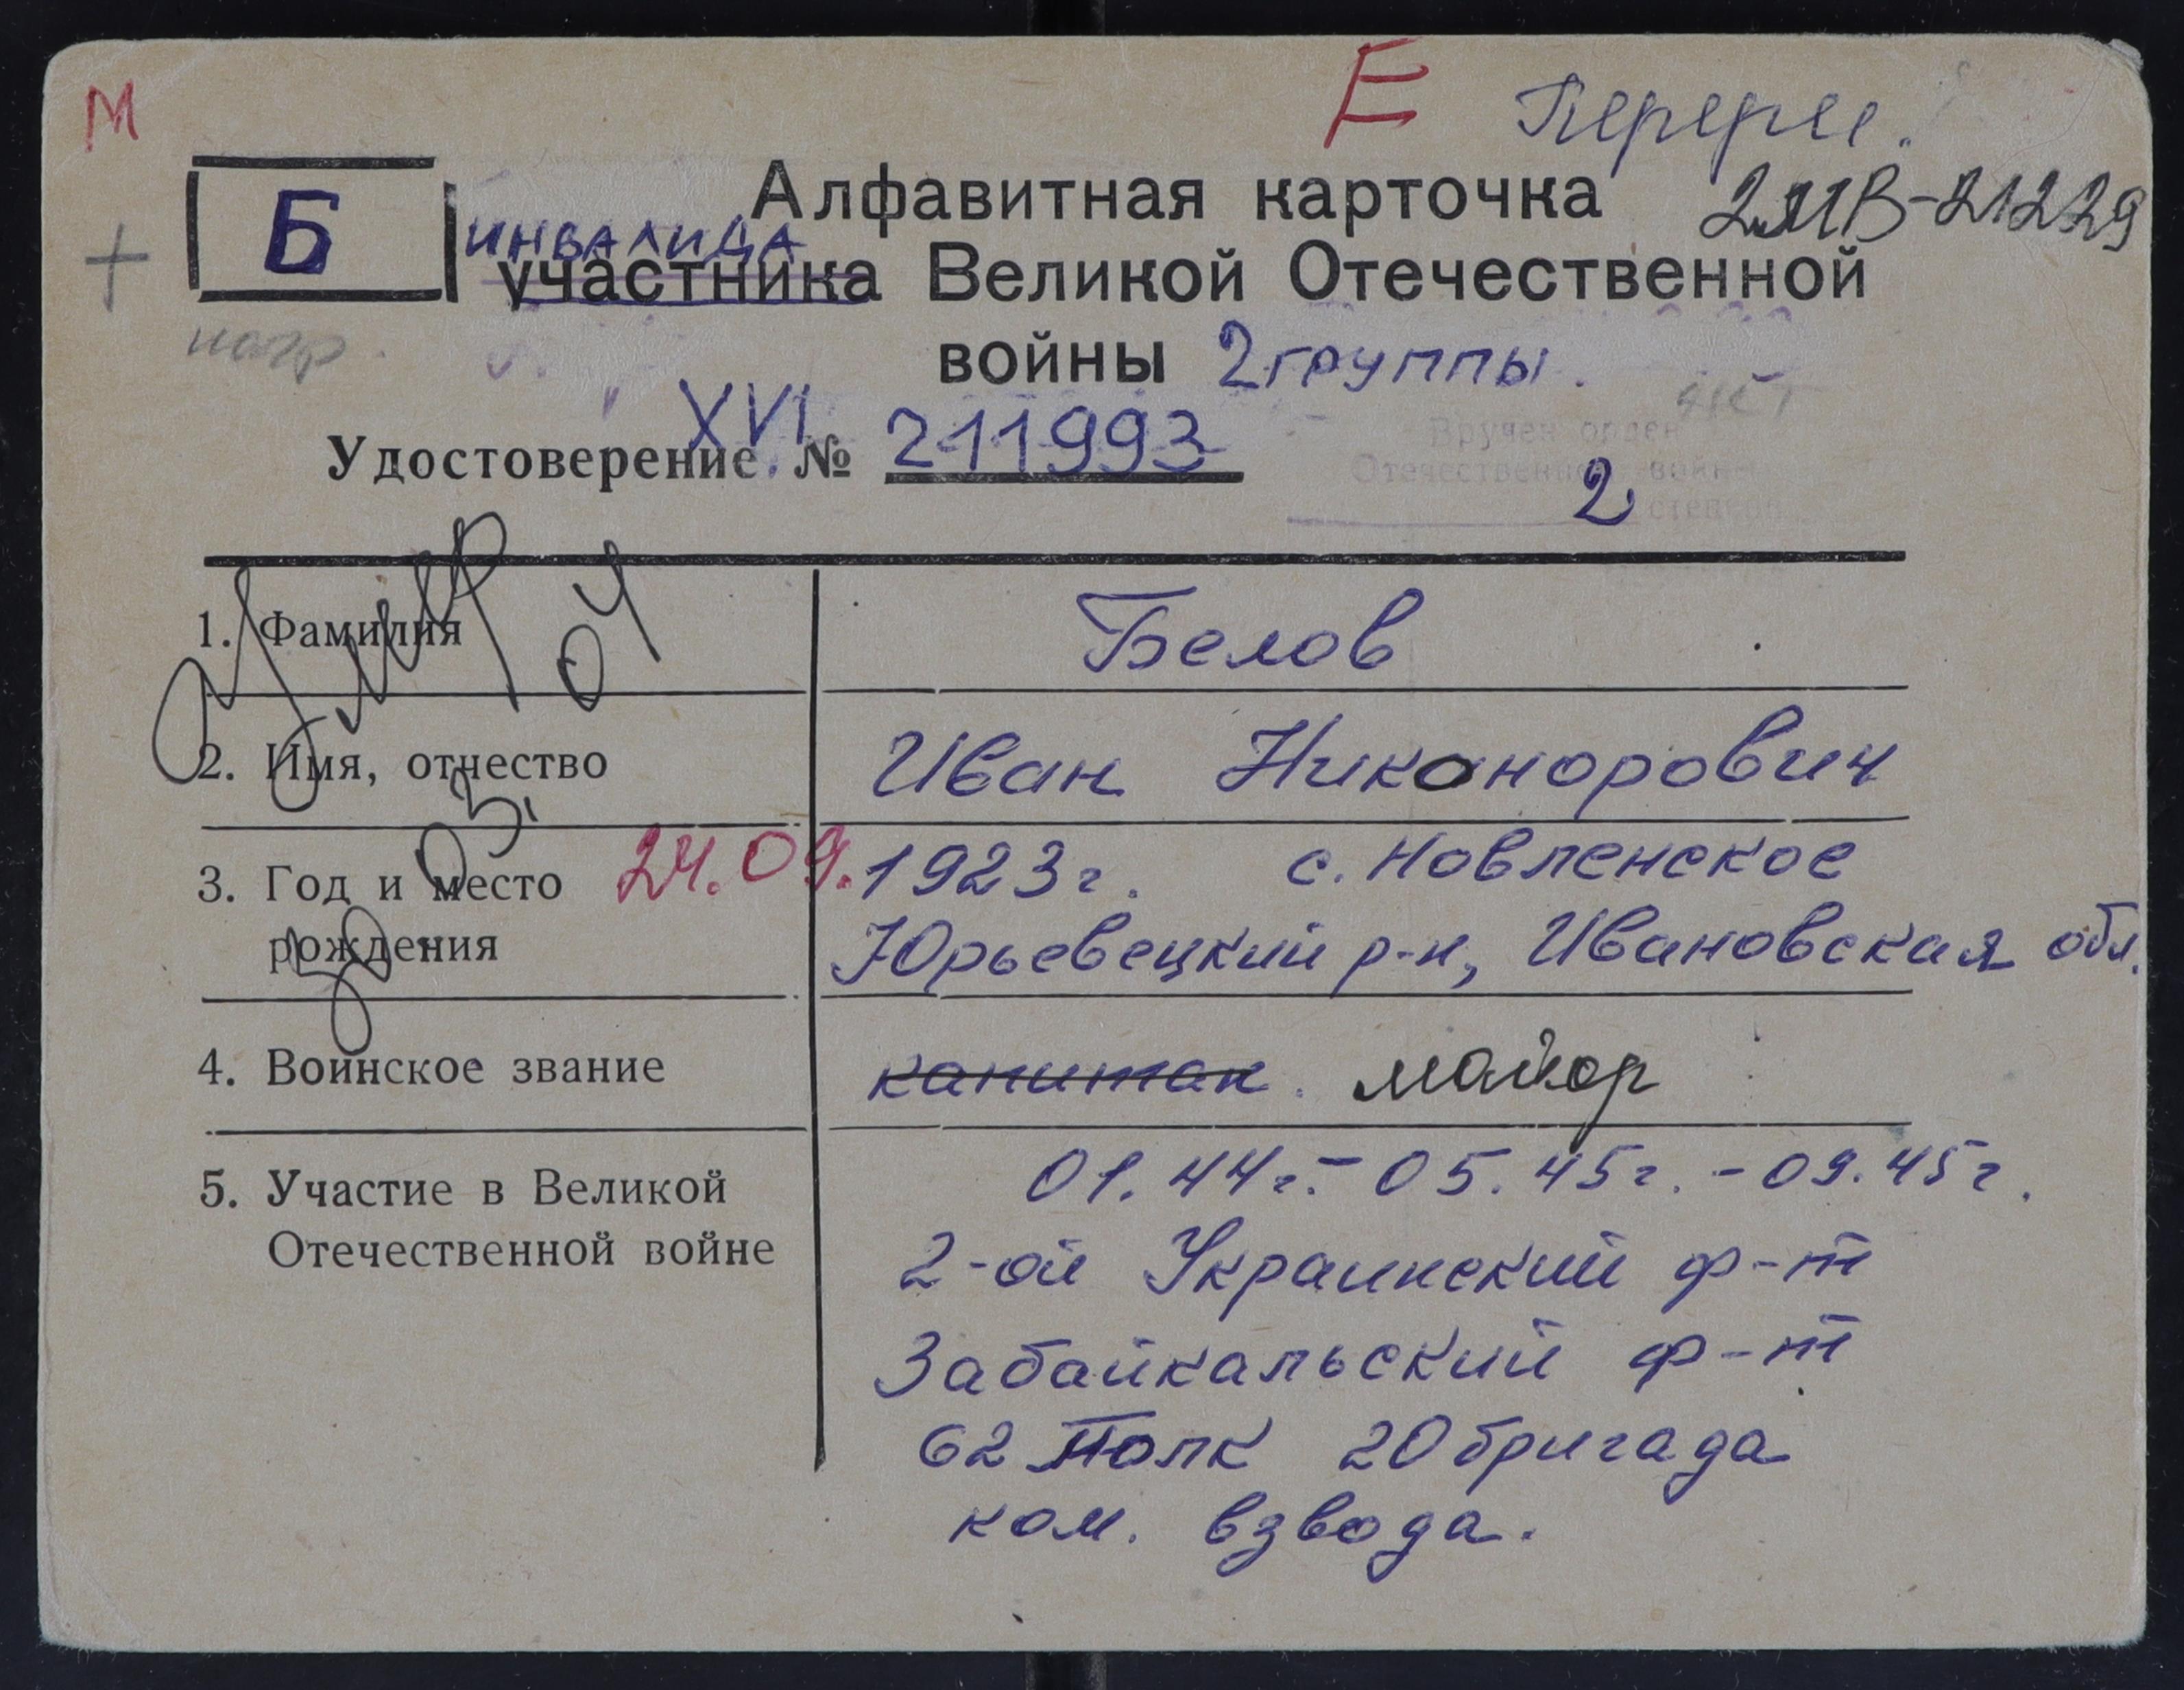 М
Е
Перерег.
Б
Алфавитная карточка
2МВ-21229
инвалида
участника Великой Отечественной
+
нагр.
войны 2 группы.
нет
XVI
Удостоверение № 211993
Вручен орден
Отечественной войны
2 степени
Умер
04
1. Фамилия Белов
2. Имя, отчество Иван Никонорович
03.
3. Год и место 24.09.1923 г. с. Новленское
рождения Юрьевецкий р-н, Ивановская обл.
4. Воинское звание капитан. майор
5. Участие в Великой 01.44 г. - 05.45 г. - 09.45 г.
Отечественной войне 2-ой Украинский ф-т
Забайкальский ф-т
62 Полк 20 бригада
ком. взвода.